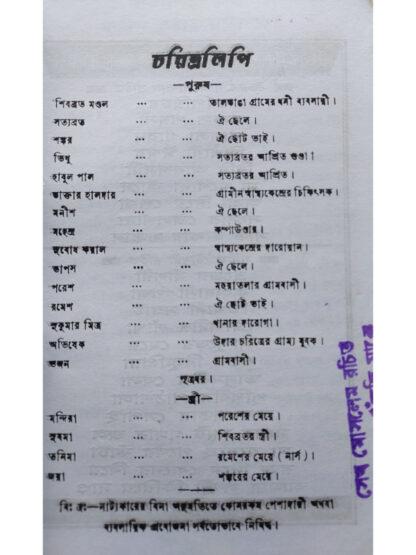 চরিত্রলিপি
—পুরুষ—
শিবব্রত মণ্ডল ... ... তালডাঙা গ্রামের ধনী ব্যবসায়ী।
সত্যব্রত ... ... ঐ ছেলে।
শঙ্কর ... ... ঐ ছোট ভাই।
ভিখু ... ... সত্যব্রতর আশ্রিত গুণ্ডা।
হাবুল পাল ... ... সত্যব্রতর আশ্রিত।
ডাক্তার হালদার ... ... গ্রামীন স্বাস্থ্যকেন্দ্রের চিকিৎসক।
মনীশ ... ... ঐ ছেলে।
মহেন্দ্র ... ... কম্পাউণ্ডার।
সুবোধ কয়াল ... ... স্বাস্থ্যকেন্দ্রের দারোয়ান।
তাপস ... ... ঐ ছেলে।
পরেশ ... ... মহুয়াতলার গ্রামবাসী।
রমেশ ... ... ঐ ছোট ভাই।
সুকুমার মিত্র ... ... থানার দারোগা।
অভিষেক ... ... উদার চরিত্রের গ্রাম্য যুবক।
ভজন ... ... গ্রামবাসী।
সূত্রধর।
—স্ত্রী—
মন্দিরা ... ... পরেশের মেয়ে।
সুষমা ... ... শিবব্রতর স্ত্রী।
তনিমা ... ... রমেশের মেয়ে (নার্স)।
জয়া ... ... শঙ্করের মেয়ে।
বিঃ দ্রঃ—নাট্যকারের বিনা অনুমতিতে কোনরকম পেশাদারী অথবা
ব্যবসায়িক প্রযোজনা সর্বতোভাবে নিষিদ্ধ।
রচিত